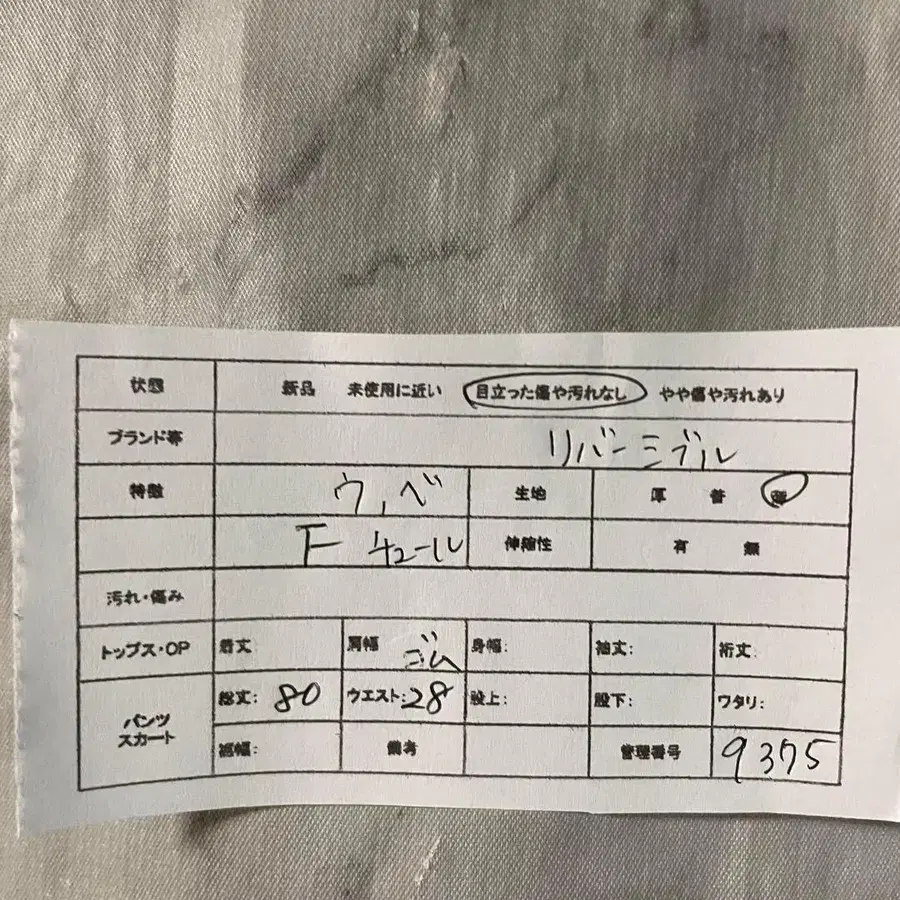 状態 新品 未使用に近い 目立った傷や汚れなし やや傷や汚れあり
ブランド等 リバーシブル
特徴 ウ、ベ 生地 厚 普 薄
F チュール 伸縮性 有 無
汚れ・傷み
トップス・OP 着丈 肩幅 ゴム 身幅: 袖丈: 裄丈:
パンツ スカート 総丈: 80 ウエスト: 28 股上: 股下: ワタリ:
裾幅: 備考 管理番号 9375